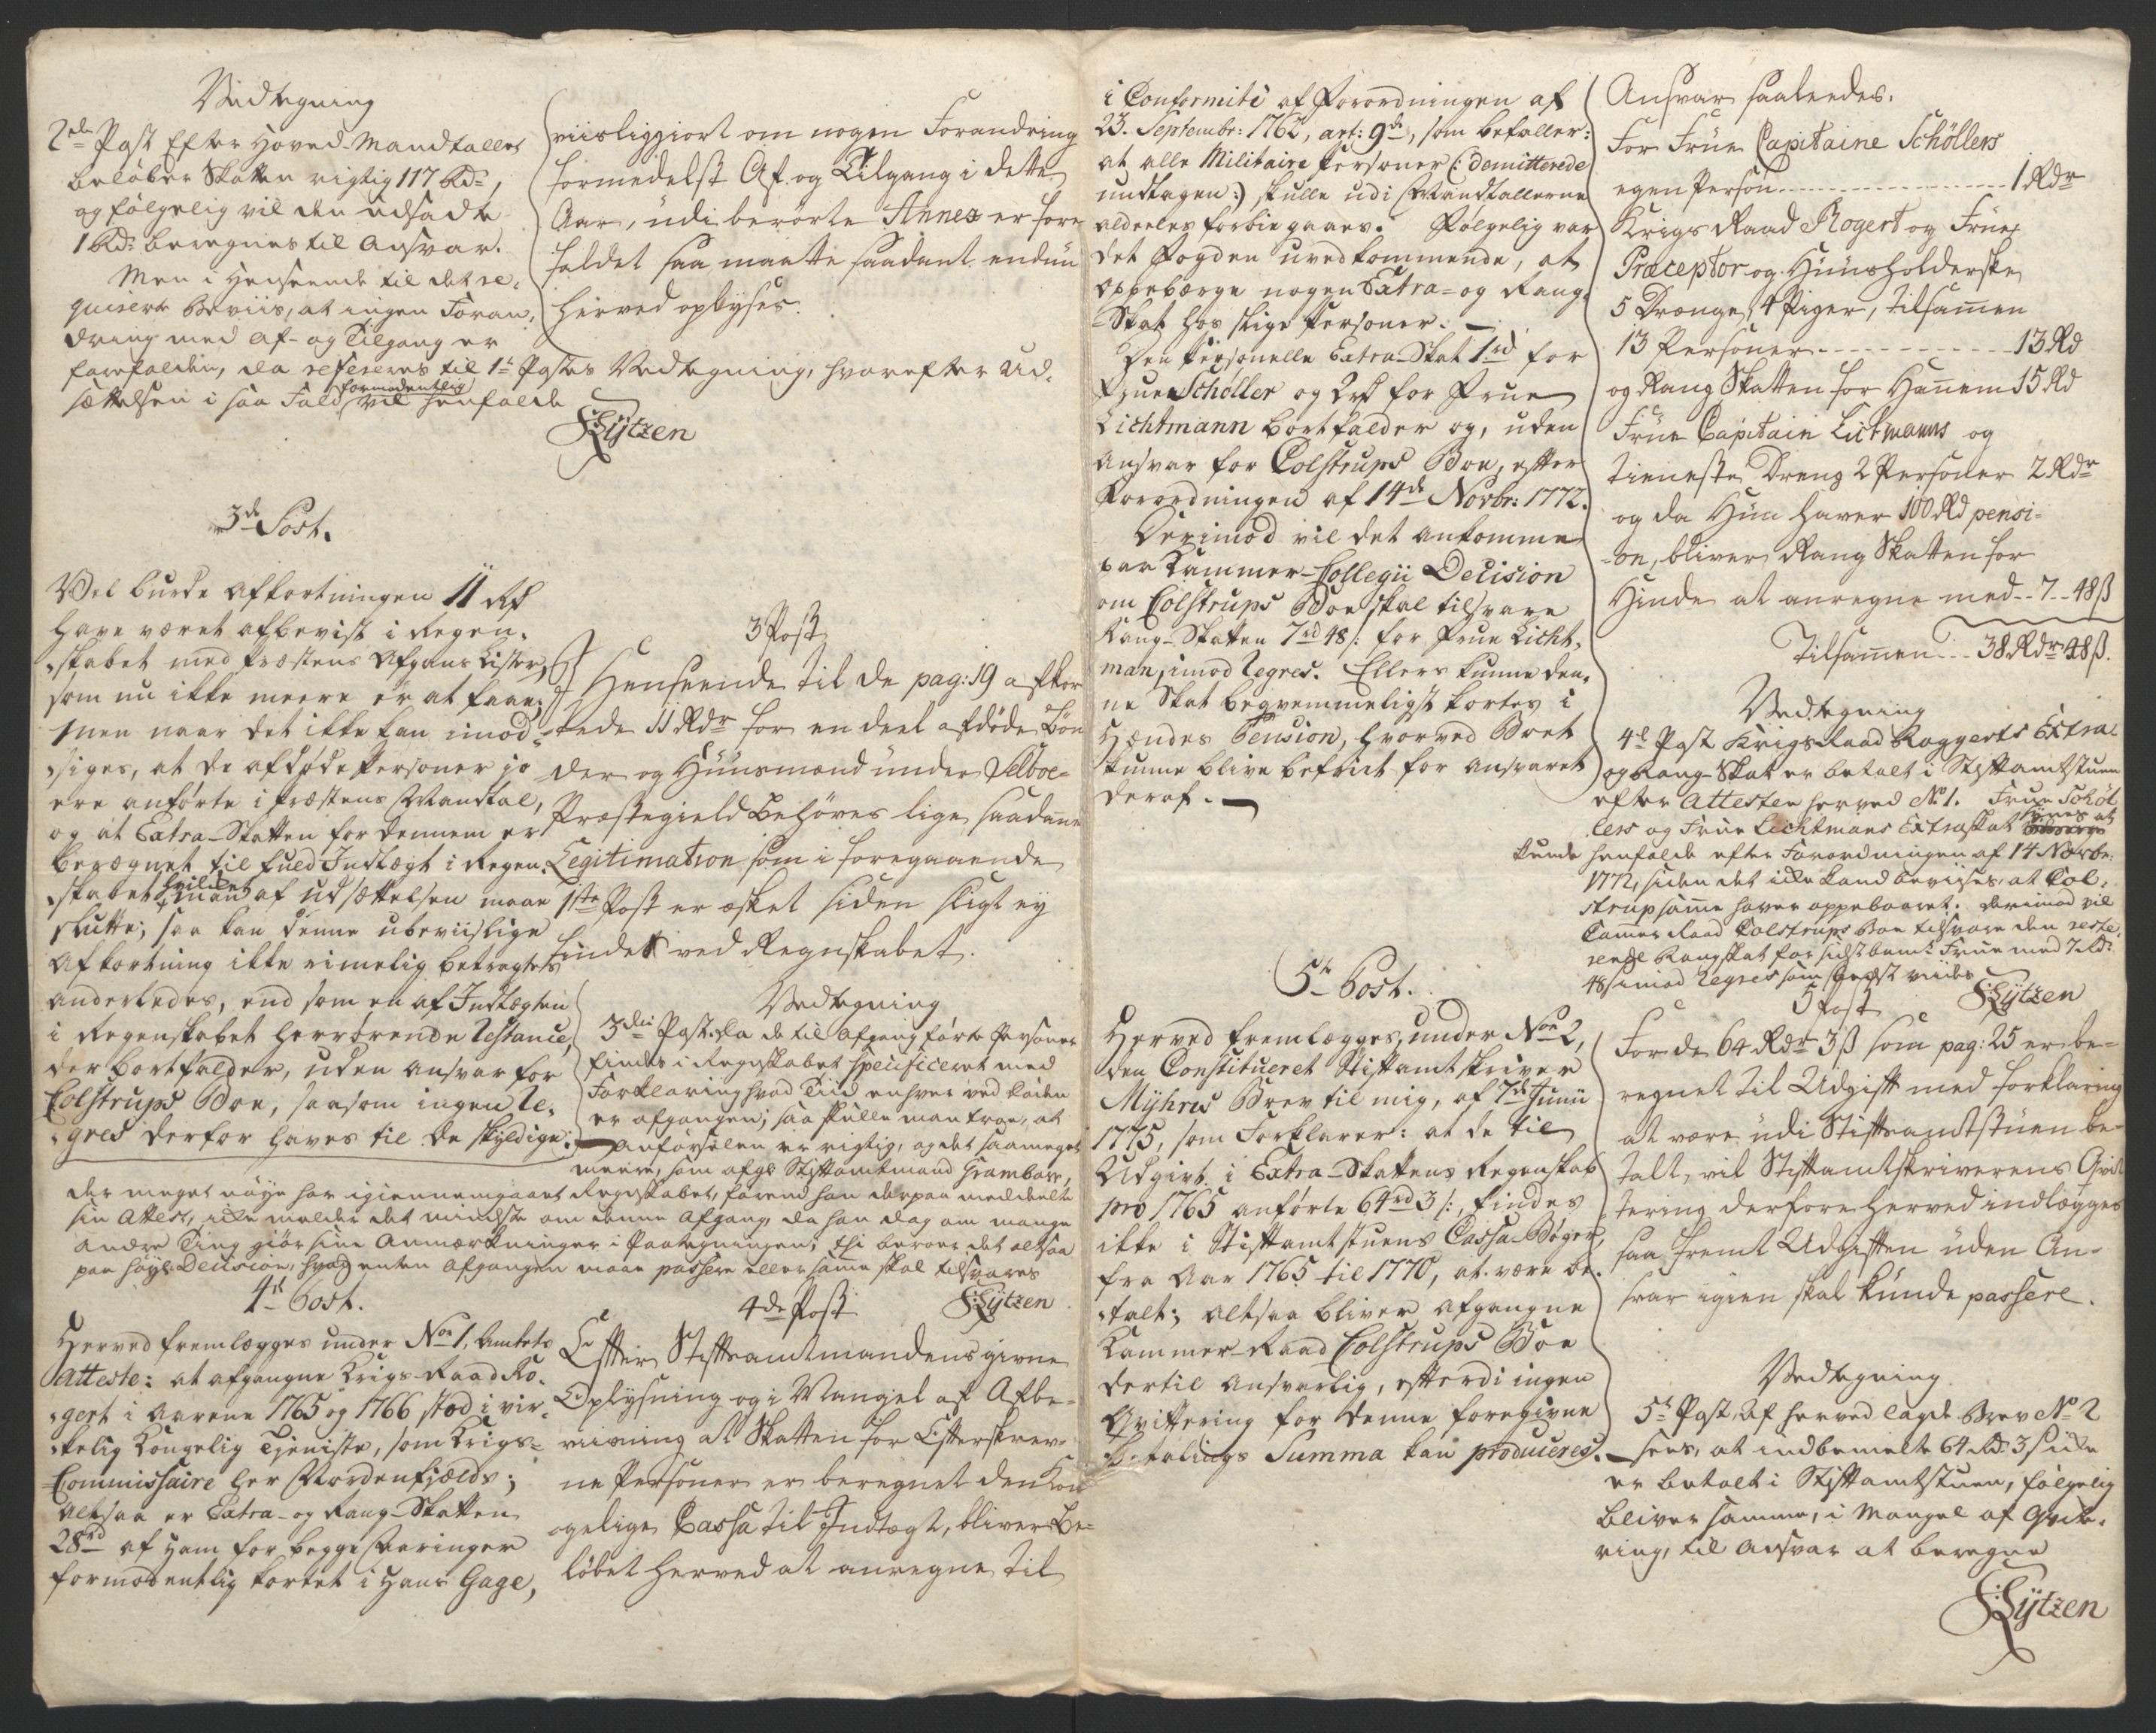 Vedtegning
2den Post Efter Hoved-Mandtallet
beløber Skatten rigtig 117 Rdr,
og følgelig vil den udsadte
1 Rdr beregnes til Ansvar.
Men i Henseende til det re-
quirerte Beviis, at ingen Foran-
dring med Af- og Tilgang er
forefalden, da refereres til 1te Postes Vedtegning, hvorefter Ud-
sættelsen i saa Fald formodentlig vil henfalde
SLytzen
viisliggiort om nogen Forandring
formedelst Af- og Tilgang i dette
Aar, udi berørte Annex er fore
faldet saa maatte saadant endnu
herved oplyses.
3de Post.
Vel burde Afkortningen 11 Rd
have været afbevist i Regen-
skabet med Præstens Afgangs Lister,
som nu ikke meere er at faae;
Men naar det ikke kan imod-
siges, at de afdøde Personer jo
ere anførte i Præstens Mandtal,
og at Extra-Skatten for dennem er
beregnet til fuld Indtægt i Regen-
skabet hvilket man af Udsættelsen maae
slutte; saa kan denne ubeviislige
Afkortning ikke rimelig betragtes
anderledes, end som en af Indtægten
i Regenskabet herrørende Restance,
der bortfalder, uden Ansvar for
Colstrups Boe, saasom ingen Re-
gres derfor haves til de skyldige.
3 Post
I Henseende til de pag: 19 afkor
tede 11 Rdr for en deel afdøde Bøn
der og Huusmænd under Selboe-
Præstegield behøves lige saadanne
Legitimation som i foregaaende
1ste Post er æsket siden sligt ey
findes ved Regnskabet.
Vedtegning
3die Post. Da de til Afgang førte Personer
findes i Regnskabet specificeret med
Forklaring hvad Tiid enhver ved Døden
er afgangen; saa skulle man troe, at
Anførselen er rigtig, og det saameget
meere, som afgl. Stiftamtmand Grambow,
der meget nøye har igiennemgaaet Regnskabet, førend han derpaa meddeelte
sin Attest, ikke melder det mindste om denne Afgang, da han dog om mange
andre Ting giør sine Anmærkninger i Paategningen; thi beroer det altsaa
paa høye Decision, hvad enten Afgangen maae passere eller samme skal tilsvares
SLytzen
4de Post.
Herved fremlægges under No 1, Amtets
Atteste: at afgangne Krigs-Raad Ro-
gert i Aarene 1765 og 1766 stod i vir-
kelig Kongelig Tjeniste, som Krigs-
Commissaire her Nordenfjelds;
altsaa er Extra- og Rang-Skatten
28rd af Ham for begge Aaringer
formodentlig kortet i Hans Gage,
4de Post
Efter Stiftsamtmandens givne
Oplysning og i Mangel af Afbe-
viisning at Skatten for Efterskrev-
ne Personer er beregnet den Kon
gelige Cassa til Indtægt, bliver Be-
løbet herved at anregne til
i Conformité af Forordningen af
23. Septembr: 1762, art: 9de, som befaller:
at alle Militaire Personer (: demitterede
undtagen :) skulle udi Mandtallerne
aldeeles forbiegaaes. Følgelig var
det Fogden uvedkommende, at
oppebærge nogen Extra- og Rang-
Skat hos slige Personer. —
Den Personelle Extra-Skat 1rd for
Frue Schøller og 2rd for Frue
Lichtmann bortfalder og, uden
Ansvar for Colstrups Boe, efter
Forordningen af 14de Novbr: 1772.
Derimod vil det ankomme
paa Kammer-Collegii Decision
om Colstrups Boe skal tilsvare
Rang-Skatten 7rd 48 s: for Frue Licht-
man, imod Regres. Ellers kunne den-
ne Skat beqvemmeligst kortes i
Hendes Pension, hvorved Boet
kunne blive befriet for Ansvaret
deraf. —
5te Post.
Herved fremlægges under Non 2,
den Constitueret Stiftamtskriver
Myhres Brev til mig, af 7de Junii
1775, som Forklarer: at de til
Udgivt i Extra-Skattens Regenskab
pro 1765 anførte 64rd 3 s:, findes
ikke i Stiftamtstuens Cassa-Bøger,
fra Aar 1765 til 1770, at være be-
talt; altsaa bliver afgangne
Kammer-Raad Colstrups Boe
dertil ansvarlig, efterdi ingen
Qvittering for denne foregivne
Betalings Summa kan produceres.
Ansvar saaledes.
For Frue Capitaine Schöllers
egen Person 1 Rdr
Krigs Raad Rogert og Frue,
Præceptor og Huusholderske,
5 Drenge, 4 Piger, tilsamen
13 Personer 13 Rd
og Rang Skatten for Hannem 15 Rd
Frue Capitain Lictmanns og
tieneste Dreng 2 Personer 2 Rdr
og da Hun haver 100 Rd pensi-
on, bliver Rang Skatten for
Hinde at anregne med 7 48 ß
Tilsamen 38 Rdr 48 ß.
Vedtegning
4de Post Krigs Raad Roggerts Extra-
og Rang-Skat er betalt i Stiftamtstuen
efter Attesten herved No 1. Frue Schøl
lers og Frue Lichtmans Extraskat synes at
kunde henfalde efter Forordningen af 14 Novbr:
1772, siden det ikke kand bevises, at Col-
strup samme haver oppebaaret. Derimod vil
Cammer Raad Colstrups Boe tilsvare den reste-
rende Rangskat for sidstbemte Frue med 7 Rd
48 s imod Regres som
SLytzen
5 Post
For de 64 Rdr 3 ß som pag: 25 er be-
regnet til Udgift med forklaring
at være udi Stiftsamtstuen be-
talt, vil Stiftamtskriverens Qvit
tering derfore herved indlægges
saa fremt Udgiften uden An-
svar igien skal kunde passere.
Vedtegning
5te Post, Af herved lagde Brev No 2
sees, at indbemelte 64 Rd 3 s ikke
er betalt i Stiftamtstuen, følgelig
bliver samme, i Mangel af Qvite-
ring, til Ansvar at beregne
SLytzen